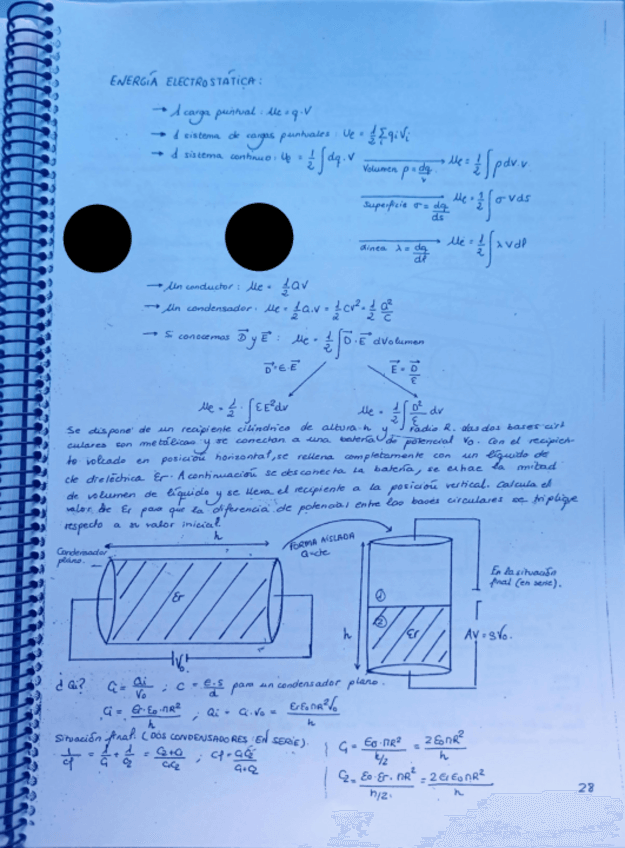 ENERGÍA ELECTROSTÁTICA:
→ 1 carga puntual: Ue = q·V
→ 1 sistema de cargas puntuales: Ue = 1/2 Σ qi Vi
→ 1 sistema continuo: Ue = 1/2 ∫ dq·V
Volumen ρ = dq/v Ue = 1/2 ∫ ρ dv·v
superficie σ = dq/ds Ue = 1/2 ∫ σ V ds
línea λ = dq/dl Ue = 1/2 ∫ λ V dl
→ Un conductor: Ue = 1/2 QV
→ Un condensador: Ue = 1/2 Q·V = 1/2 CV² = 1/2 Q²/C
→ Si conocemos D⃗ y E⃗: Ue = 1/2 ∫ D⃗·E⃗ dVolumen
D⃗ = ε·E⃗ E⃗ = D⃗/ε
Ue = 1/2 · ∫ εE² dv Ue = 1/2 ∫ D²/ε dv
Se dispone de un recipiente cilíndrico de altura h y radio R. Las dos bases cir
culares son metálicas y se conectan a una batería de potencial V₀. Con el recipien
te volcado en posición horizontal, se rellena completamente con un líquido de
cte dieléctrica εr. A continuación se desconecta la batería, se extrae la mitad
de volumen de líquido y se lleva el recipiente a la posición vertical. Calcula el
valor de εr para que la diferencia de potencial entre las bases circulares se triplique
respecto a su valor inicial.
h
FORMA AISLADA
Q=cte
Condensador
plano.
εr
V₀
h
①
②
εr
En la situación
final (en serie).
ΔV = 3V₀.
¿Qi? Ci = Qi/V₀ ; C = ε·S/d para un condensador plano.
Ci = εr·ε₀·πR²/h ; Qi = Ci·V₀ = εrε₀πR²V₀/h
Situación final. (DOS CONDENSADORES EN SERIE).
1/Cf = 1/C₁ + 1/C₂ = C₂+C₁/C₁C₂ ; Cf = C₁C₂/C₁+C₂
C₁ = ε₀·πR²/h/2 = 2ε₀πR²/h
C₂ = ε₀·εr·πR²/h/2 = 2εrε₀πR²/h
28